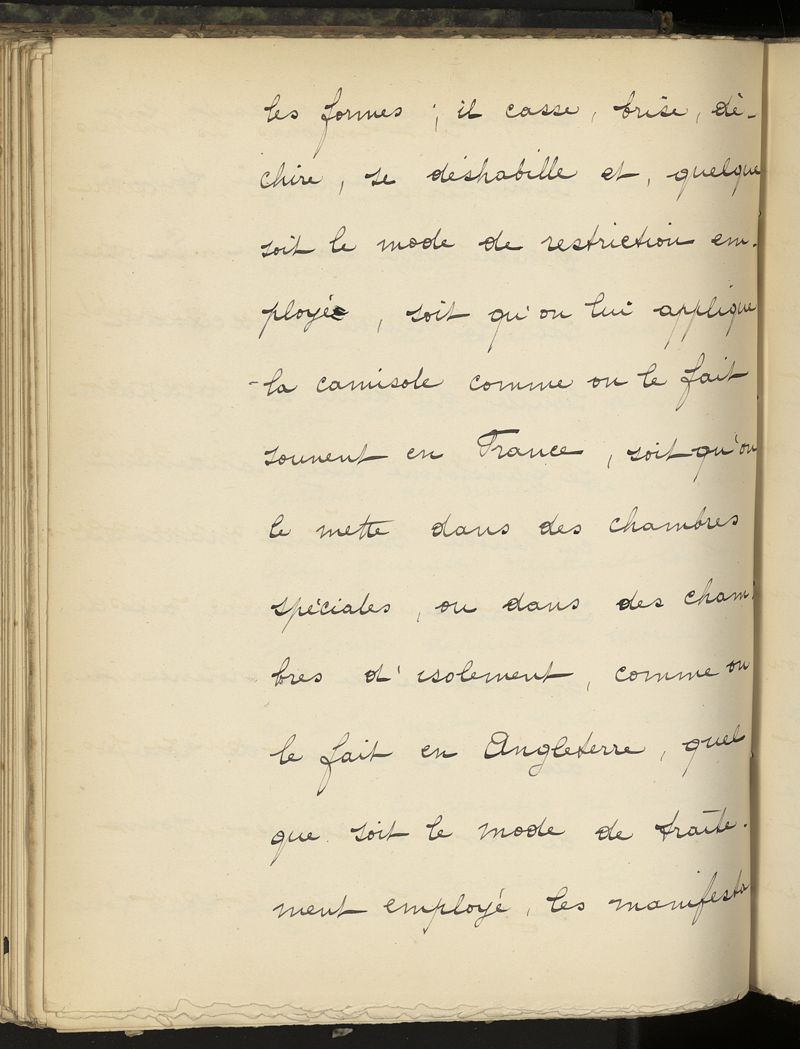 les formes ; il casse, brise, dé-
chire, se déshabille et, quelque
soit le mode de restriction em-
ployé, soit qu'on lui applique
la camisole comme on le fait
souvent en France, soit qu'on
le mette dans des chambres
spéciales, ou dans des cham-
bres d'isolement, comme on
le fait en Angleterre, quel
que soit le mode de traite-
ment employé, les manifesta